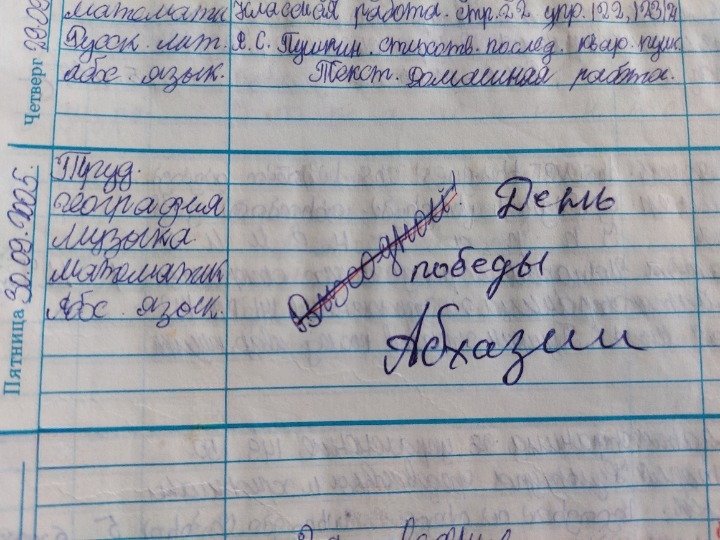 Четверг 29.09
математик Классная работа. стр.22 упр.122,123
Русск. лит. А. С. Пушкин. стихотв. послед. квар.
Абс. язык. Текст. Домашняя работа.
Пятница 30.09.2005.
Труд.
география
музыка
математик
Абс. язык.
Выходной!
День
победы
Абхазии